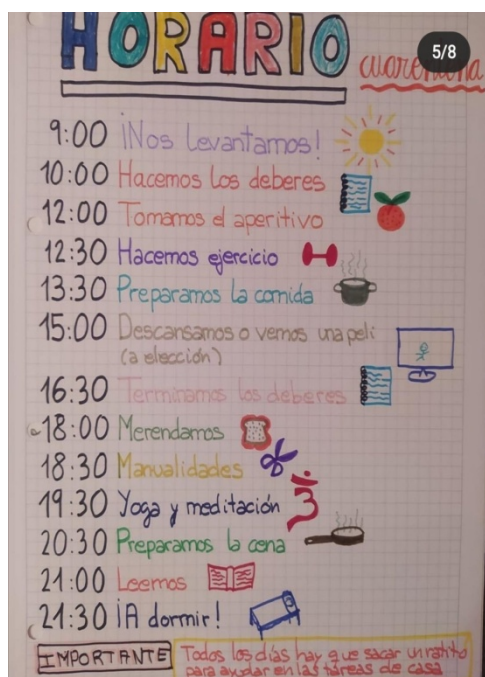 HORARIO
5/8
cuarentena
9:00 ¡Nos levantamos!
10:00 Hacemos los deberes
12:00 Tomamos el aperitivo
12:30 Hacemos ejercicio
13:30 Preparamos la comida
15:00 Descansamos o vemos una peli
(a elección)
16:30 Terminamos los deberes
18:00 Merendamos
18:30 Manualidades
19:30 Yoga y meditación
20:30 Preparamos la cena
21:00 Leemos
21:30 ¡A dormir!
IMPORTANTE
Todos los días hay que sacar un ratito
para ayudar en las tareas de casa